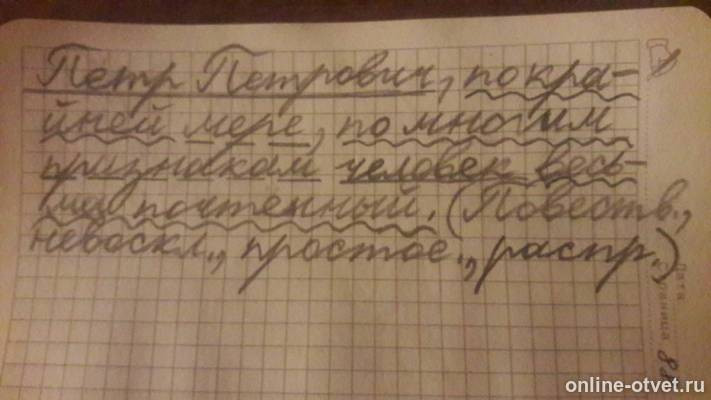 Петр Петрович, по кра-
йней мере, по многим
признакам человек весь-
ма почтенный. (Повеств.,
невоскл., простое., распр.)
online-otvet.ru